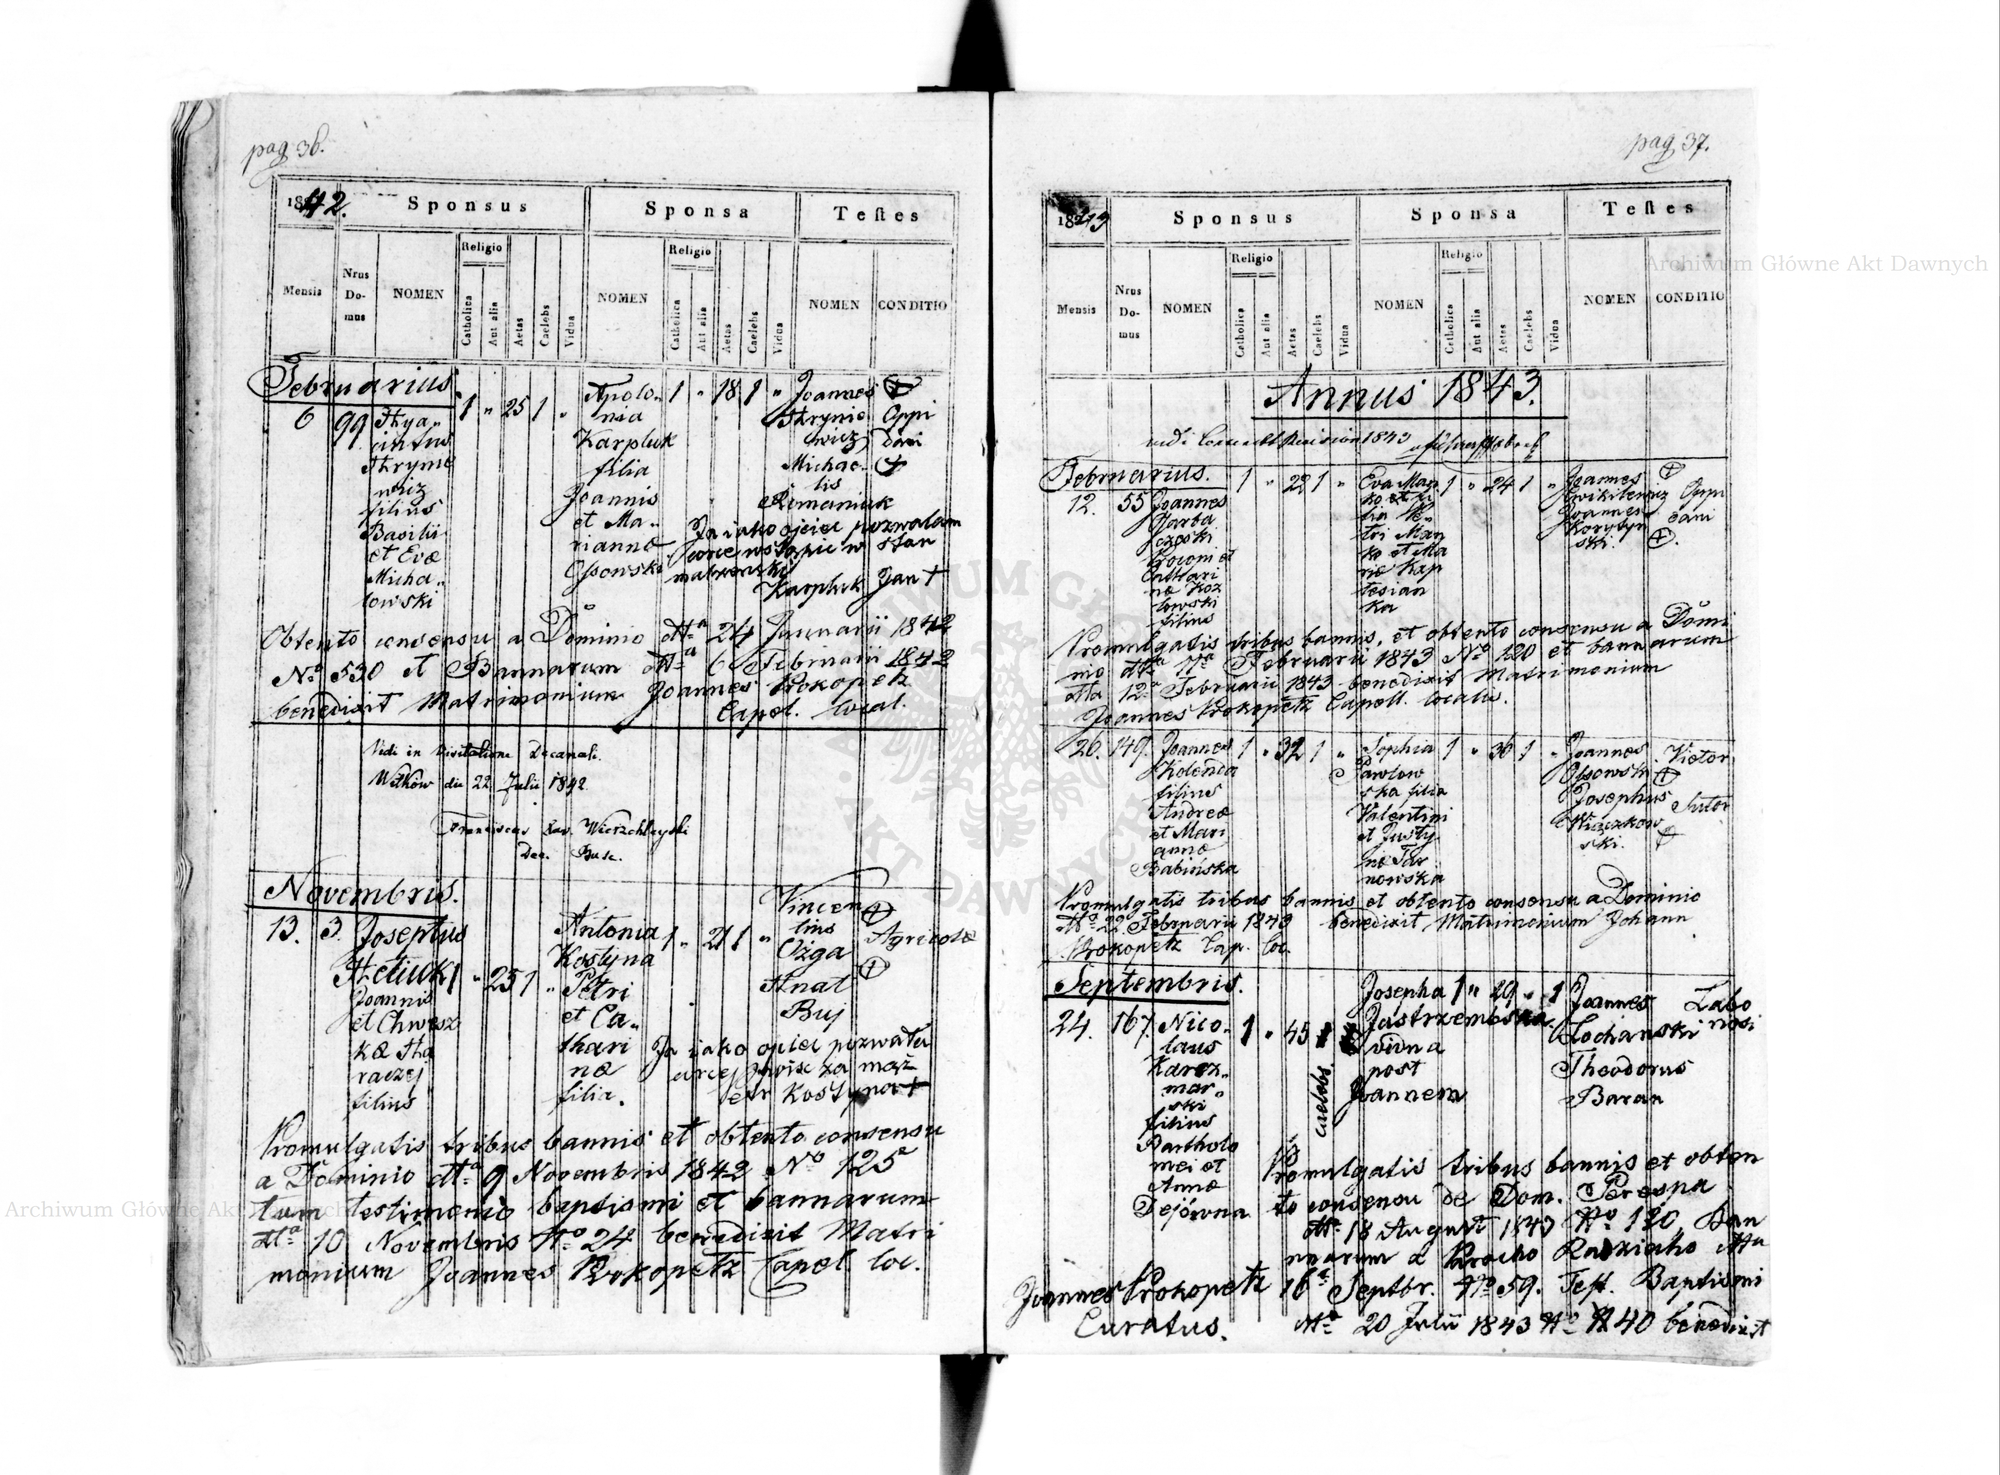 pag 36.
1842.
Sponsus
Sponsa
Testes
Mensis
Nrus Do-mus
NOMEN
Religio
Catholica
Aut alia
Aetas
Caelebs
Vidua
NOMEN
Religio
Catholica
Aut alia
Aetas
Caelebs
Vidua
NOMEN
CONDITIO
Februarius
6 99
Hya-
cintus
Hryme
wicz
filius
Basilii
et Evæ
Micha-
lowski
1 " 25 1 "
Apolo-
nia
Karpluk
filia
Joannis
et Ma-
riannæ
Ossowska
1 " 18 1 "
Joannes
Hrynie
wicz
Michae-
lis
Romaniuk
Oppi
dani
Ja iako ojciec pozwalam
corce wstąpic w stan
matrzenski
Karpluk Jan +
Obtento consensu a Dominio dtta 24 Januarii 1842
No 530 et Bannarum dtta 6 Februarii 1842
benedixit Matrimonium Joannes Prokopetz
Capel. local.
Vidi in Visitatione Decanali.
Witków die 22 Julii 1842.
Franciscus Xav.
Dec. Busc.
Novembris.
13. 3.
Josephus
Joannis
et Chwesz
kæ Ha
raczej
filius
1 " 25 1 "
Antonia
Kostyna
Petri
et Ca-
thari
næ
filia.
1 " 21 1 "
Vincen
tius
Ożga
Hnat
Buj
Agricolæ
Ja iako ociec pozwalu
Petr Kostyna +
Promulgatis tribus bannis et obtento consensu
a Dominio dtta 9 Novembris 1842 No 125
tum testimonio baptismi et bannarum
dtta 10 Novembris No 24 benedixit Matri
monium Joannes Prokopetz Capel. loc.
pag 37.
1843
Sponsus
Sponsa
Testes
Mensis
Nrus Do-mus
NOMEN
Religio
Catholica
Aut alia
Aetas
Caelebs
Vidua
NOMEN
Religio
Catholica
Aut alia
Aetas
Caelebs
Vidua
NOMEN
CONDITIO
Annus 1843.
1843
Februarius.
12. 55
Joannes
Garba
czeski
Procopii et
Cathari
næ Koz
lowski
filius
1 " 22 1 "
Eva Mar
ko et fi
lia Pe-
tri Mar
ko et Ma
riæ Kap
tesian
ka
1 " 24 1 "
Joannes
Joannes
Korytyn
ski.
Oppi
dani
Promulgatis tribus bannis, et obtento consensu a Domi
nio dtta 11a Februarii 1843 No 120 et bannarum
dtta 12a Februarii 1843 benedixit Matrimonium
Joannes Prokopetz Capell. localis.
26. 149.
Joannes
Kolenda
filius
Andreæ
et Mari
annæ
Babińska
1 " 32 1 "
Sophia
Pawlow
ska filia
Valentini
et Justy
næ Tar
nowska
1 " 36 1 "
Joannes
Ossowski
Josephus
Kiaczkow
ski.
Vietor
Sutor
Promulgatis tribus bannis et obtento consensu a Dominio
dtto 22 Februarii 1843 benedixit Matrimonium Johann
Prokopetz Cap. loc.
Septembris.
24. 167.
Nico-
laus
Karcz-
mar-
ski
filius
Bartholo
mei et
Annæ
Dejówna
1 " 45
caelebs.
Josepha
Jastrzembska
vidua
post
Joannem
1 " 29 " 1
Joannes
Lochanski
Theodorus
Baran
Labo
riosi
Promulgatis tribus bannis et obten
to consensu de Dom. Perespa
dtto 18 August 1843 No 120, Ban
narum a Parocho Radziecho dtta
16a Septbr. No 59. Test. Baptismi
dtto 20 Julii 1843 No 40 benedixit
Joannes Prokopetz
Curatus.
Archiwum Główne Akt Dawnych
Archiwum Główne Akt Dawnych
ARCHIWUM GŁÓWNE AKT DAWNYCH